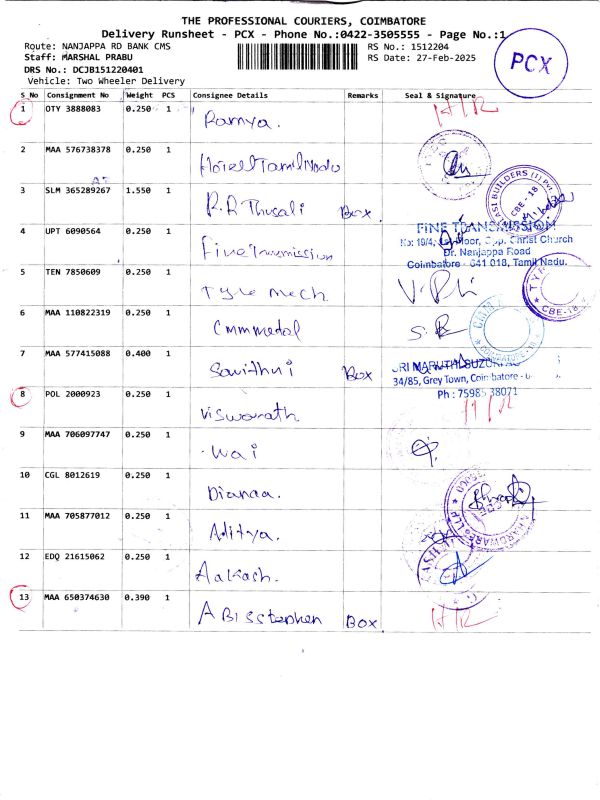 THE PROFESSIONAL COURIERS, COIMBATORE
Delivery Runsheet - PCX - Phone No.:0422-3505555 - Page No.:1
Route: NANJAPPA RD BANK CMS
RS No.: 1512204
Staff: MARSHAL PRABU
RS Date: 27-Feb-2025
DRS No.: DCJB151220401
Vehicle: Two Wheeler Delivery
PCX
S_No Consignment No Weight PCS Consignee Details Remarks Seal & Signature
1 OTY 3888083 0.250 1 Ramya.
2 MAA 576738378 0.250 1 Hotel Tamil Nadu
3 SLM 365289267 1.550 1 P.R Thusali Box
BUILDERS (I) Pvt.
CBE - 18
4 UPT 6090564 0.250 1 Fine
FINE TRANSMISSION
No: 19/4, Floor, Opp. Christ Church
Dr. Nanjappa Road
Coimbatore - 641 018, Tamil Nadu.
5 TEN 7850609 0.250 1 Tyre mech
CBE-18
6 MAA 110822319 0.250 1 Cmmmetal
7 MAA 577415088 0.400 1 Savithri Box
SRI MARUTHI SUZUKI
34/85, Grey Town, Coimbatore
Ph : 75985 38071
8 POL 2000923 0.250 1 Viswanath
9 MAA 706097747 0.250 1 Wai
10 CGL 8012619 0.250 1 Dianaa.
11 MAA 705877012 0.250 1 Aditya.
12 EDQ 21615062 0.250 1 Aakash.
13 MAA 650374630 0.390 1 ABisstephen Box